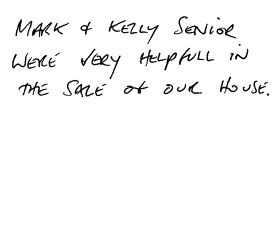 MARK & KELLY SENIOR
WERE VERY HELPFULL IN
THE SALE OF OUR HOUSE.